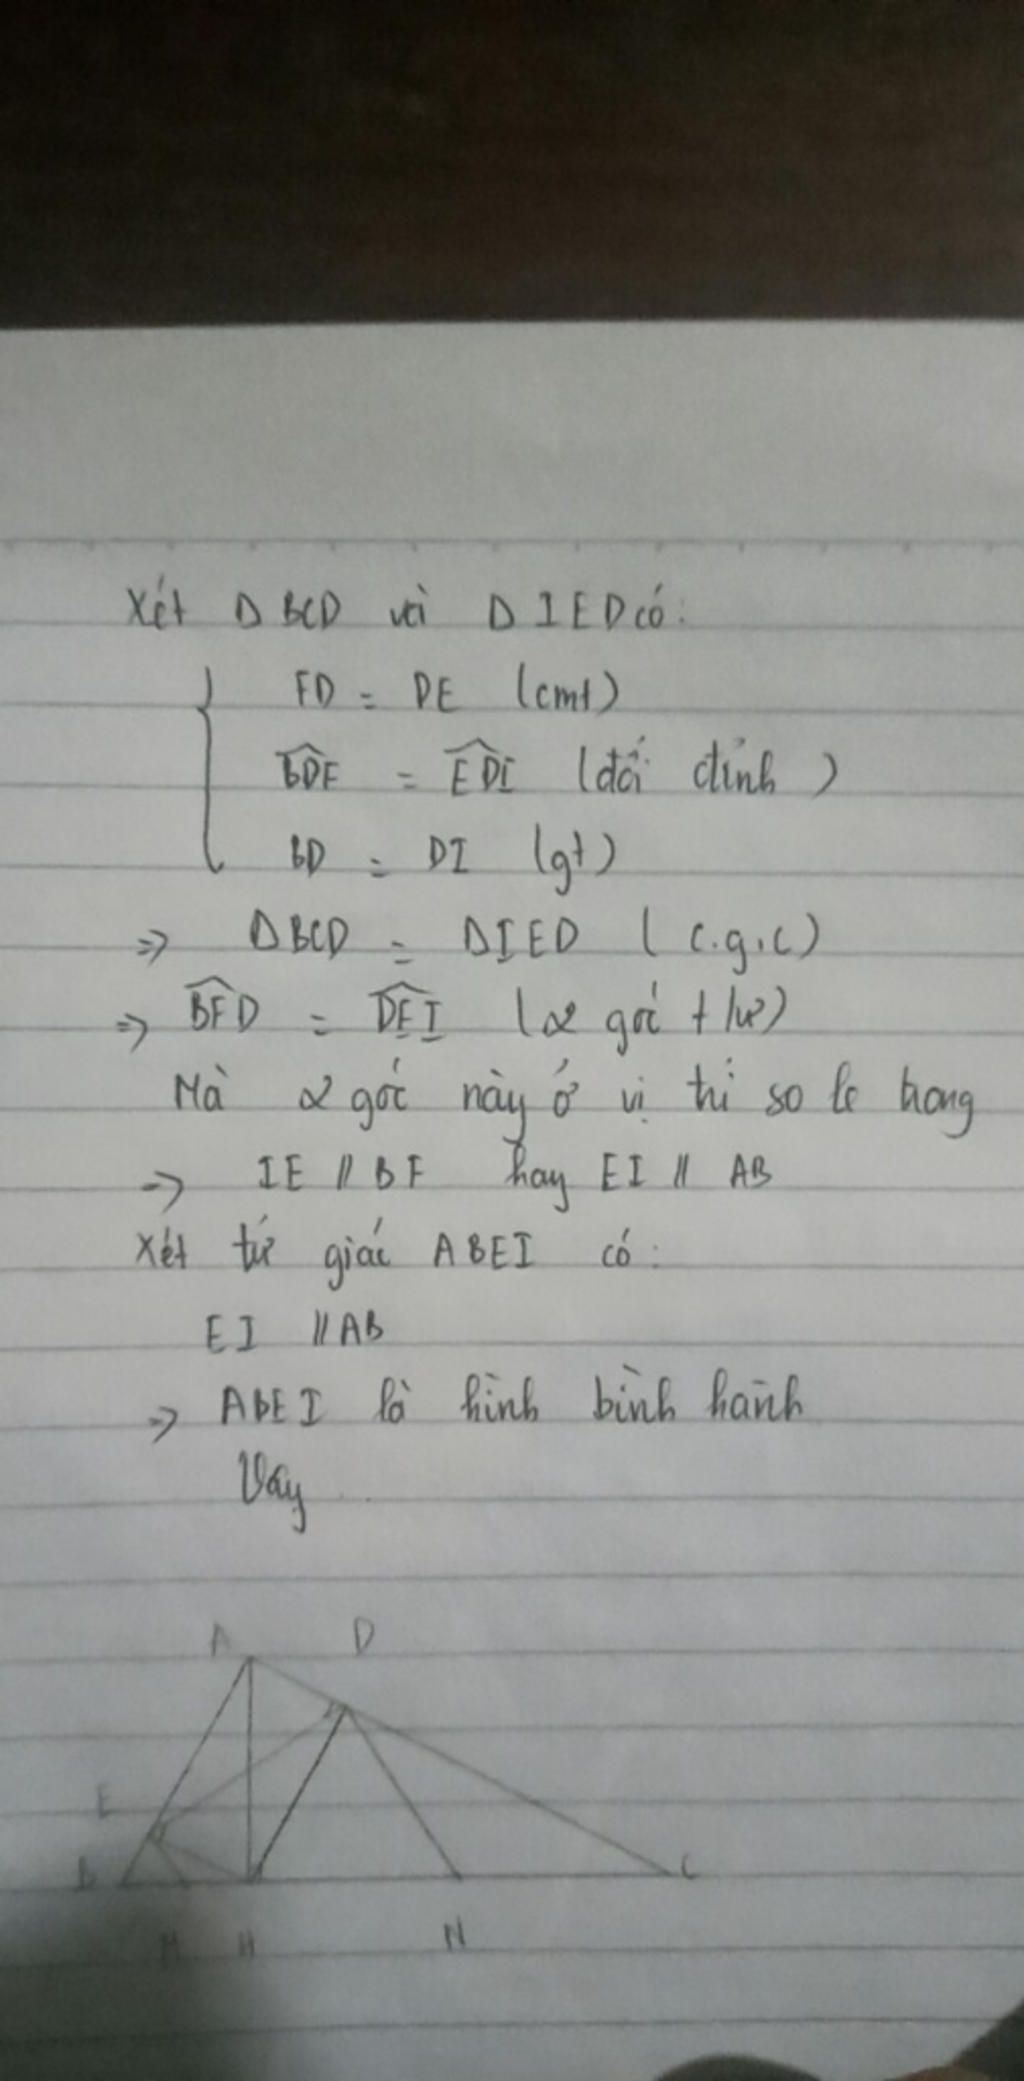 Xét Δ BCD với Δ IED có:
FD = DE (cmt)
BDF = EDI (đối đỉnh)
BD = DI (gt)
=> ΔBCD = ΔIED (c.g.c)
=> BFD = DEI (2 góc t/ư)
Mà 2 góc này ở vị trí so le trong
=> IE // BF hay EI // AB
Xét tứ giác ABEI có:
EI // AB
=> ABEI là hình bình hành
Vậy
A D
E
B C
M H N